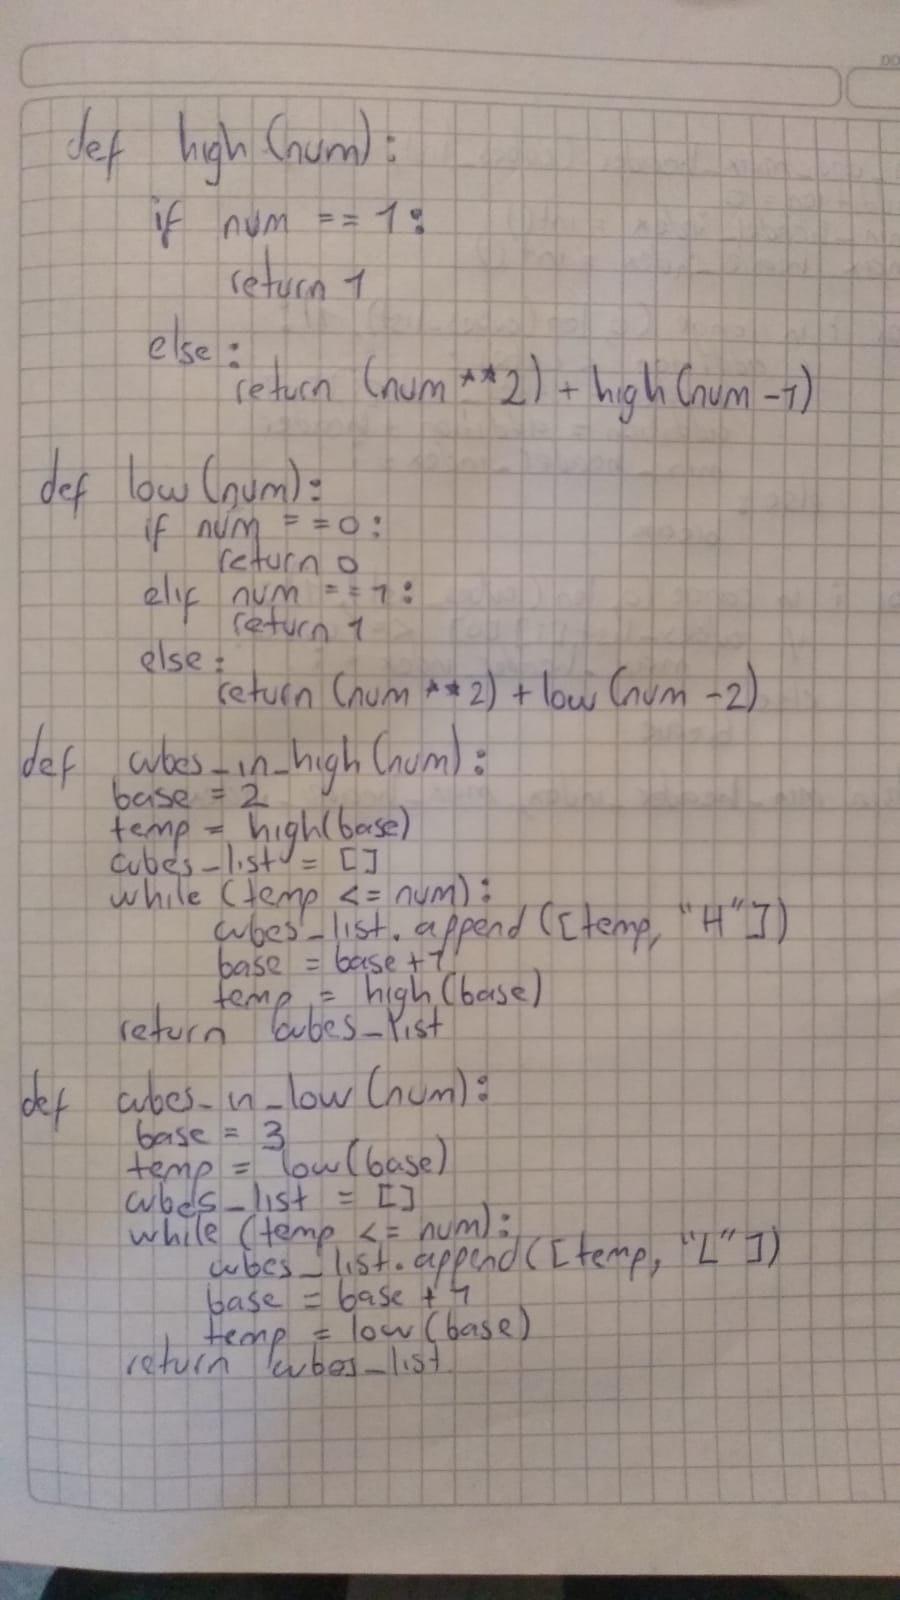 def high(num):
if num == 1:
return 1
else:
return (num**2) + high(num-1)
def low(num):
if num == 0:
return 0
elif num == 1:
return 1
else:
return (num**2) + low(num-2)
def cubes_in_high(num):
base = 2
temp = high(base)
cubes_list = []
while (temp <= num):
cubes_list.append([temp, "H"])
base = base+1
temp = high(base)
return cubes_list
def cubes_in_low(num):
base = 3
temp = low(base)
cubes_list = []
while (temp <= num):
cubes_list.append([temp, "L"])
base = base +
temp = low(base)
return cubes_list